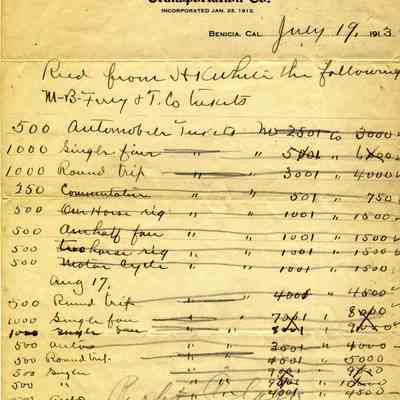 Transportation Co.
INCORPORATED JAN. 25, 1912.
BENICIA, CAL. July 19, 1913
Recd from H K White the following
M-B-Ferry & T. Co tickets
500 Automobile Tickets No 2501 to 3000
1000 Single fare " " 5001 " 6000
1000 Round trip " " 3001 " 4000
250 Commutation " " 501 " 750
500 One Horse rig " " 1001 " 1500
500 One half fare " " 1001 " 1500
500 two horse rig " " 1001 " 1500
500 Motor Cycle " " 1001 " 1500
Aug 17.
500 Round trip " 4001 " 4500
1000 Single fare " " 7001 " 8000
1000 Single fare " " 8001 " 9000
500 autos " " 3501 " 4000
500 Round trip " " 4501 " 5000
500 Single " "
500 " "
500 4001 " 4500